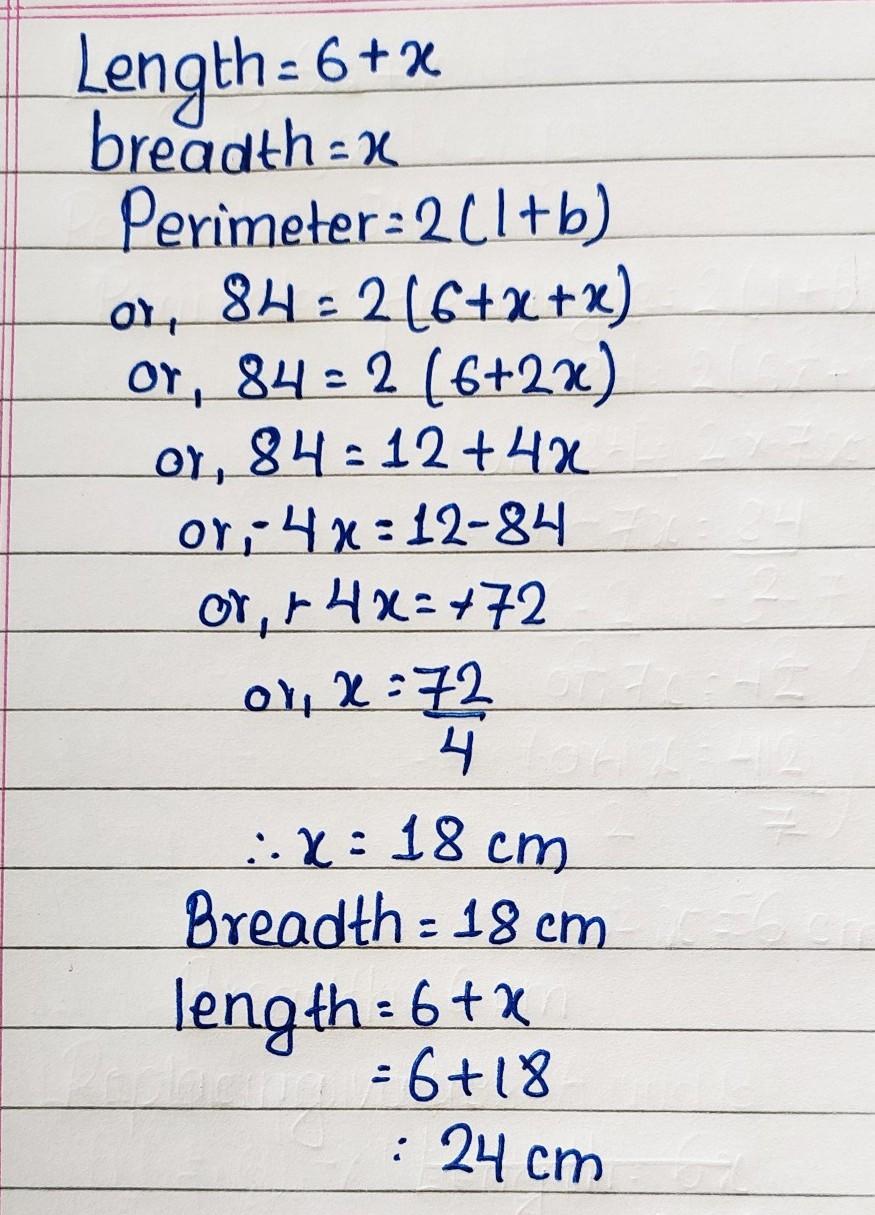 Length = 6+x
breadth = x
Perimeter = 2(l+b)
or, 84 = 2(6+x+x)
or, 84 = 2 (6+2x)
or, 84 = 12 + 4x
or, -4x = 12-84
or, +4x = +72
or, x = 72
4
∴ x = 18 cm
Breadth = 18 cm
length = 6+x
= 6+18
: 24 cm